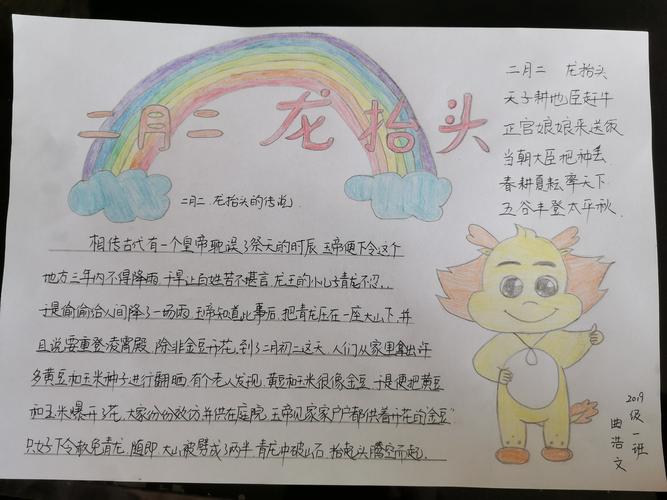 二月二 龙抬头
二月二 龙抬头的传说
相传古代有一个皇帝耽误了祭天的时辰 玉帝便下令这个
地方三年内不得降雨 干旱让白姓苦不堪言 龙王的小儿子青龙不忍..
于是偷偷给人间降了一场雨 玉帝知道此事后,把青龙压在一座大山下,并
且说要重登凌霄殿 除非金豆开花,到了二月初二这天 人们从家里拿出许
多黄豆和玉米种子进行翻晒 有个老人发现,黄豆和玉米很像金豆 于是便把黄豆
和玉米爆开了花.大家份份效仿并供在庭院 玉帝见家家户户都供着开花的"金豆"
只好下令赦免青龙.随即 大山被劈成了两半 青龙冲破山石.抬起头腾空而起.
二月二 龙抬头
天子耕地臣赶牛
正宫娘娘来送饭
当朝大臣把种丢
春耕夏耘率天下
五谷丰登太平秋.
2019级一班
曲浩文